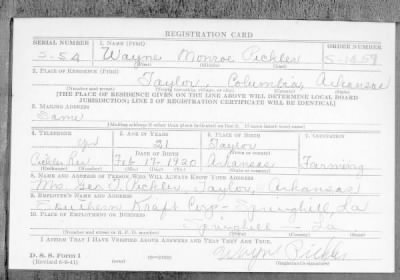 REGISTRATION CARD
SERIAL NUMBER 1. NAME (Print) ORDER NUMBER
S-54 Wayne Monroe Pickler S-1458
(First) (Middle) (Last)
2. PLACE OF RESIDENCE (Print)
Taylor, Columbia, Arkansas
(Number and street) (Town, township, village, or city) (County) (State)
[THE PLACE OF RESIDENCE GIVEN ON THE LINE ABOVE WILL DETERMINE LOCAL BOARD
JURISDICTION; LINE 2 OF REGISTRATION CERTIFICATE WILL BE IDENTICAL]
3. MAILING ADDRESS
Same
[Mailing address if other than place indicated on line 2. If same insert word same]
4. TELEPHONE 5. AGE IN YEARS 6. PLACE OF BIRTH 7. OCCUPATION
21 Taylor
DATE OF BIRTH
Feb 17 1920 Arkansas Farming
(Exchange) (Number) (Mo.) (Day) (Yr.) (State or country)
8. NAME AND ADDRESS OF PERSON WHO WILL ALWAYS KNOW YOUR ADDRESS
Mrs. Geo. T. Pickler, Taylor, Arkansas
9. EMPLOYER'S NAME AND ADDRESS
Southern Kraft Corp - Springhill, La
10. PLACE OF EMPLOYMENT OR BUSINESS
Springhill La
(Number and street or R. F. D. number) (Town) (County) (State)
I AFFIRM THAT I HAVE VERIFIED ABOVE ANSWERS AND THAT THEY ARE TRUE.
Pickler
D. S. S. Form 1
(Revised 6-9-41) (over) (Registrant's signature)